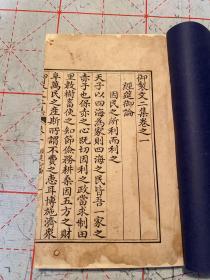 御製文二集卷之一
經筵御論
因民之所利而利之
天子以四海為家則四海之民皆吾一家之
赤子也保赤之心既切因利之政當求制田
里教樹畜使之知節儉務耕桑因五方之財
阜萬民之產斯所謂不費之惠耳博施濟眾